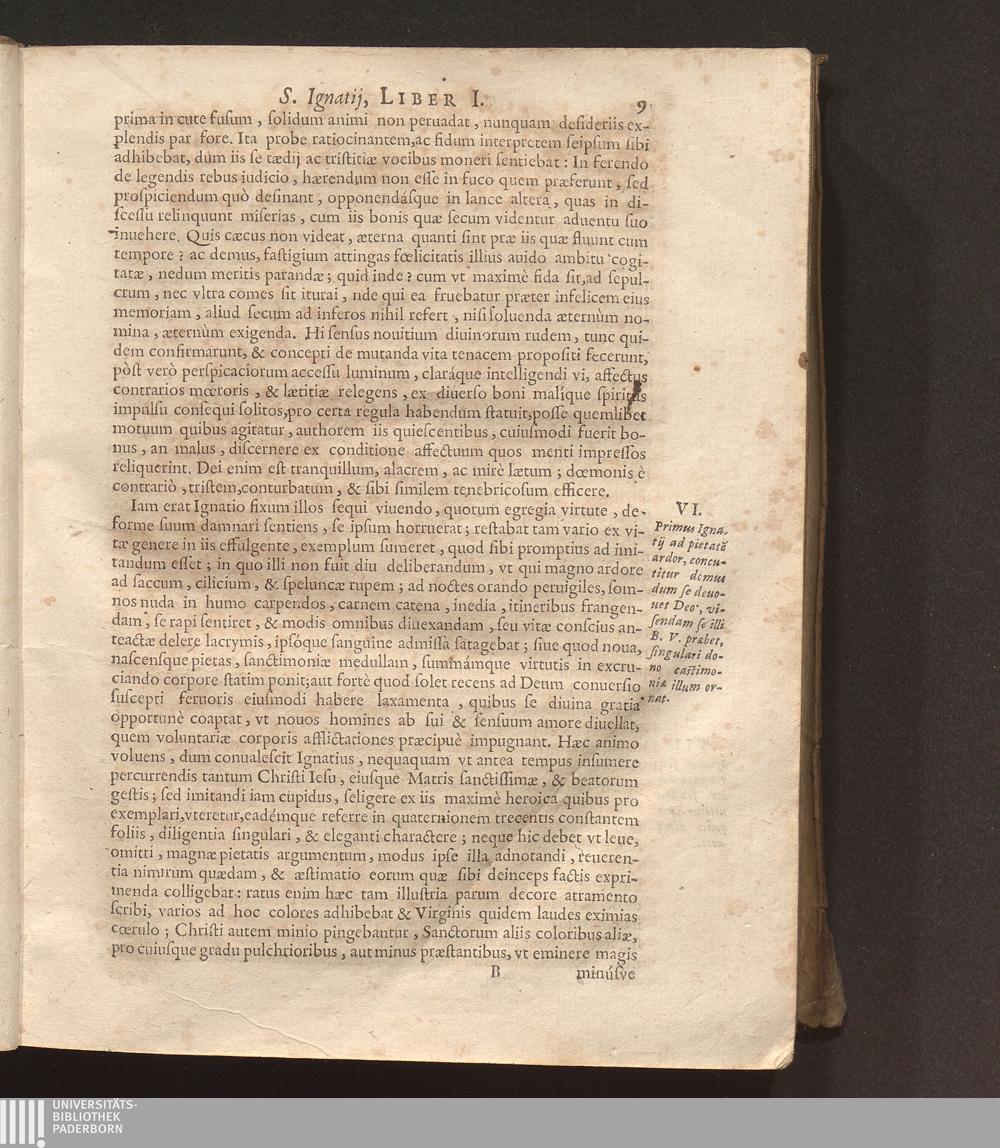 S. Ignatij, LIBER I. 9
prima in cute fusum, solidum animi non peruadat, nunquam desideriis ex-
plendis par fore. Ita probe ratiocinantem, ac fidum interpretem seipsum sibi
adhibebat, dum iis se tædij ac tristitiæ vocibus moneri sentiebat: In ferendo
de legendis rebus iudicio, hærendum non esse in fuco quem præferunt, sed
prospiciendum quò desinant, opponendásque in lance altera, quas in di-
scessu relinquunt miserias, cum iis bonis quæ secum videntur aduentu suo
inuehere. Quis cæcus non videat, æterna quanti sint præ iis quæ fluunt cum
tempore? ac demus, fastigium attingas fœlicitatis illius auido ambitu cogi-
tatæ, nedum meritis parandæ; quid inde? cum vt maximè fida sit, ad sepul-
crum, nec vltra comes sit iturai, nde qui ea fruebatur præter infelicem eius
memoriam, aliud secum ad inferos nihil refert, nisi soluenda æternùm no-
mina, æternùm exigenda. Hi sensus nouitium diuinorum rudem, tunc qui-
dem confirmarunt, & concepti de mutanda vita tenacem propositi fecerunt,
pòst verò perspicaciorum accessu luminum, claráque intelligendi vi, affectus
contrarios mœroris, & lætitiæ relegens, ex diuerso boni malíque spiritus
impulsu consequi solitos, pro certa regula habendum statuit, posse quemlibet
motuum quibus agitatur, authorem iis quiescentibus, cuiusmodi fuerit bo-
nus, an malus, discernere ex conditione affectuum quos menti impressos
reliquerint. Dei enim est tranquillum, alacrem, ac mirè lætum; dœmonis è
contrariò, tristem, conturbatum, & sibi similem tenebricosum efficere.
Iam erat Ignatio fixum illos sequi viuendo, quorum egregia virtute, de-
forme suum damnari sentiens, se ipsum horruerat; restabat tam vario ex vi-
tæ genere in iis effulgente, exemplum sumeret, quod sibi promptius ad imi-
tandum esset; in quo illi non fuit diu deliberandum, vt qui magno ardore
ad saccum, cilicium, & speluncæ rupem; ad noctes orando peruigiles, som-
nos nuda in humo carpendos, carnem catena, inedia, itineribus frangen-
dam, se rapi sentiret, & modis omnibus diuexandam, seu vitæ conscius an-
teactæ delere lacrymis, ipsóque sanguine admissa satagebat; siue quod noua,
nascensque pietas, sanctimoniæ medullam, summámque virtutis in excru-
ciando corpore statim ponit; aut fortè quod solet recens ad Deum conuersio
suscepti feruoris eiusmodi habere laxamenta, quibus se diuina gratia
opportunè coaptat, vt nouos homines ab sui & sensuum amore diuellat,
quem voluntariæ corporis afflictationes præcipuè impugnant. Hæc animo
voluens, dum conualescit Ignatius, nequaquam vt antea tempus insumere
percurrendis tantum Christi Iesu, eiusque Matris sanctissimæ, & beatorum
gestis; sed imitandi iam cupidus, seligere ex iis maximè heroica quibus pro
exemplari, vteretur, eadémque referre in quaternionem trecentis constantem
foliis, diligentia singulari, & eleganti charactere; neque hic debet vt leue,
omitti, magnæ pietatis argumentum, modus ipse illa adnotandi, reueren-
tia nimirum quædam, & æstimatio eorum quæ sibi deinceps factis expri-
menda colligebat: ratus enim hæc tam illustria parum decore atramento
scribi, varios ad hoc colores adhibebat & Virginis quidem laudes eximias
cœrulo; Christi autem minio pingebantur, Sanctorum aliis coloribus aliæ,
pro cuiusque gradu pulchrioribus, aut minus præstantibus, vt eminere magis
B minúsve
VI.
Primus Igna-
tij ad pietatē
ardor, concu-
titur domus
dum se deuo-
uet Deo, vi-
sendam se illi
B. V. præbet,
singulari do-
no castimo-
niæ illum or-
nat.
UNIVERSITÄTS-
BIBLIOTHEK
PADERBORN